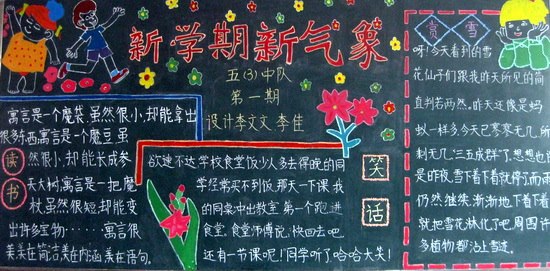 新学期新气象
五(3)中队
第一期
设计李文文 李佳
读书
寓言是一个魔袋,虽然很小,却能拿出
很多东西寓言是一个魔豆,虽
然很小,却能长成参
天大树寓言是一把魔
杖,虽然很短,却能变
出许多宝物……寓言很
美,美在简洁美在内涵,美在语句。
笑话
欲速不达 学校食堂饭少人多去得晚的同
学经常买不到饭,那天一下课 我
的同桌冲出教室 第一个跑进
食堂,食堂师傅说:快回去吧
还有一节课呢!同学听了哈哈大笑!
赏雪
呀!今天看到的雪
花仙子们跟我昨天所见的简
直判若两然。昨天还像是蚂
蚁一样多,今天已寥寥无几,所
剩无几,“三五成群”了,想想也
是昨夜,雪下着下着就停了,而雨
仍然继续渐渐地下着下
就把雪花淋化了吧,周围许
多植物都沾上雪迹。